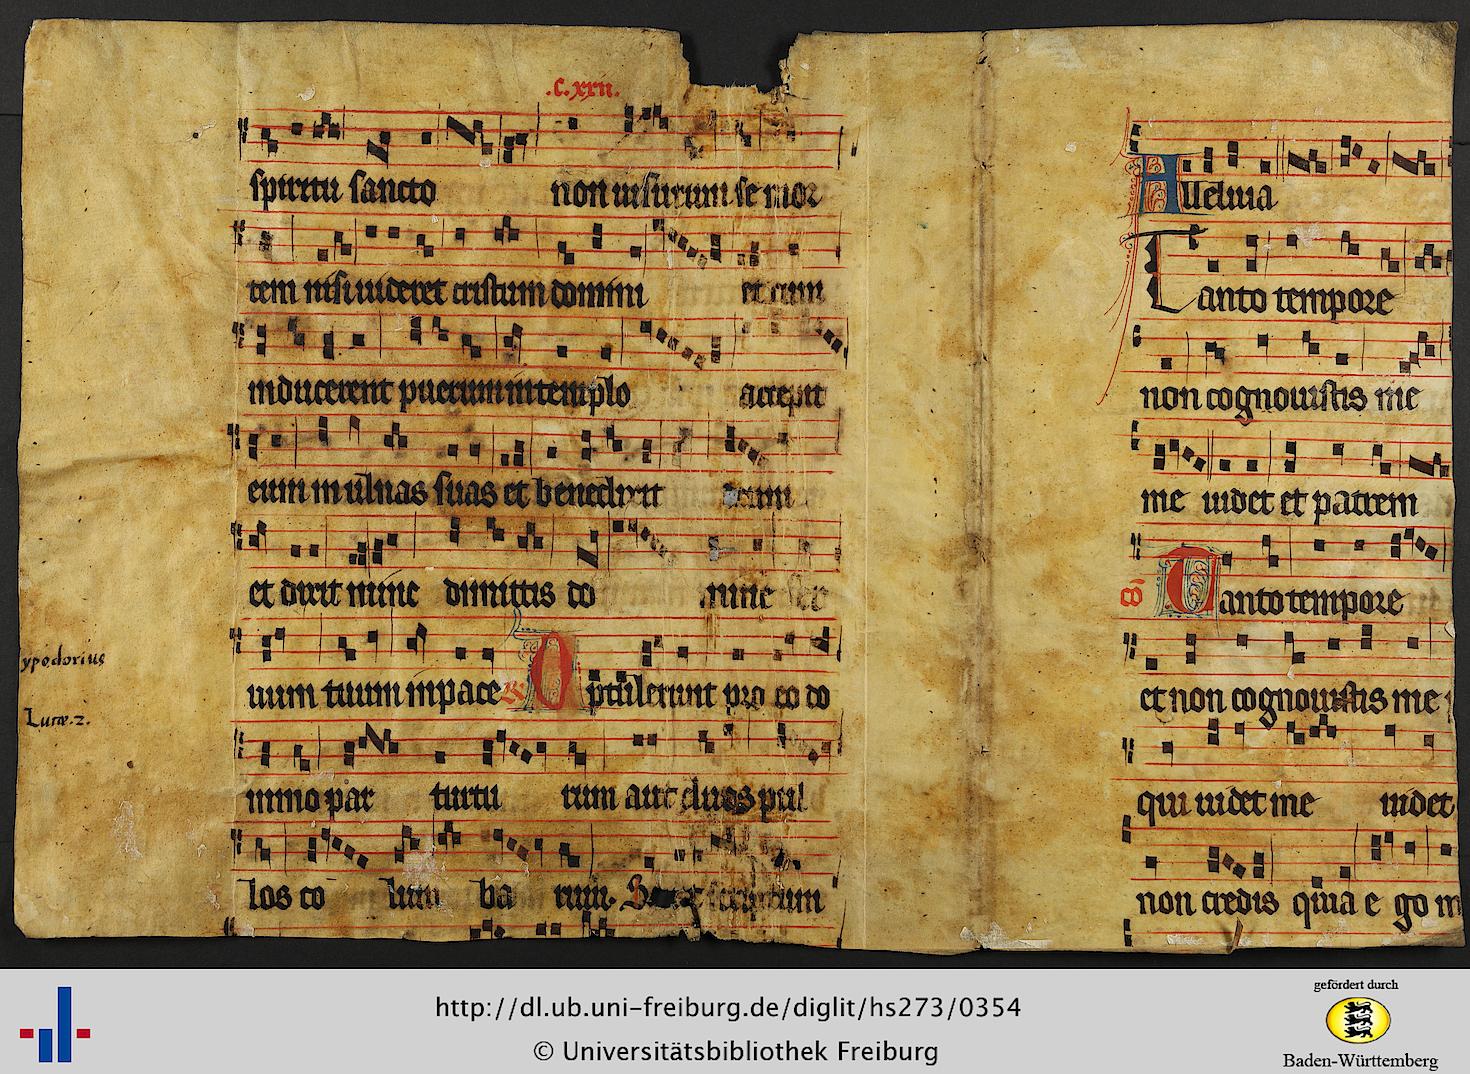 .C.xxii.
spiritu sancto non uisurum se mor
tem nisi uideret cristum domini et cum
inducerent puerum in templo accepit
eum in ulnas suas et benedixit deum
et dixit nunc dimittis do mine ser
uum tuum in pace R. Optulerunt pro eo do
mino par turtu rum aut duos pul
los co lum ba rum.
ypodorius
Luce.2.
Alleluia
Tanto tempore
non cognouistis me
me uidet et patrem
co Tanto tempore
et non cognouistis me
qui uidet me uidet
non credis quia e go
http://dl.ub.uni-freiburg.de/diglit/hs273/0354
© Universitätsbibliothek Freiburg
gefördert durch
Baden-Württemberg